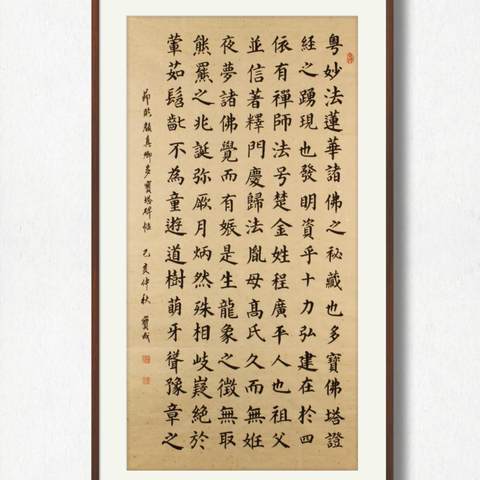 粤妙法蓮華諸佛之秘藏也多寶佛塔證
經之踴現也發明資乎十力弘建在於四
依有禪師法号楚金姓程廣平人也祖父
並信著釋門慶歸法胤母髙氏久而無姙
夜夢諸佛覺而有娠是生龍象之徵無取
熊羆之兆誕弥厥月炳然殊相岐嶷絶於
葷茹髫齔不為童遊道樹萌牙聳豫章之
節臨顏真卿多寶塔碑帖 己亥仲秋